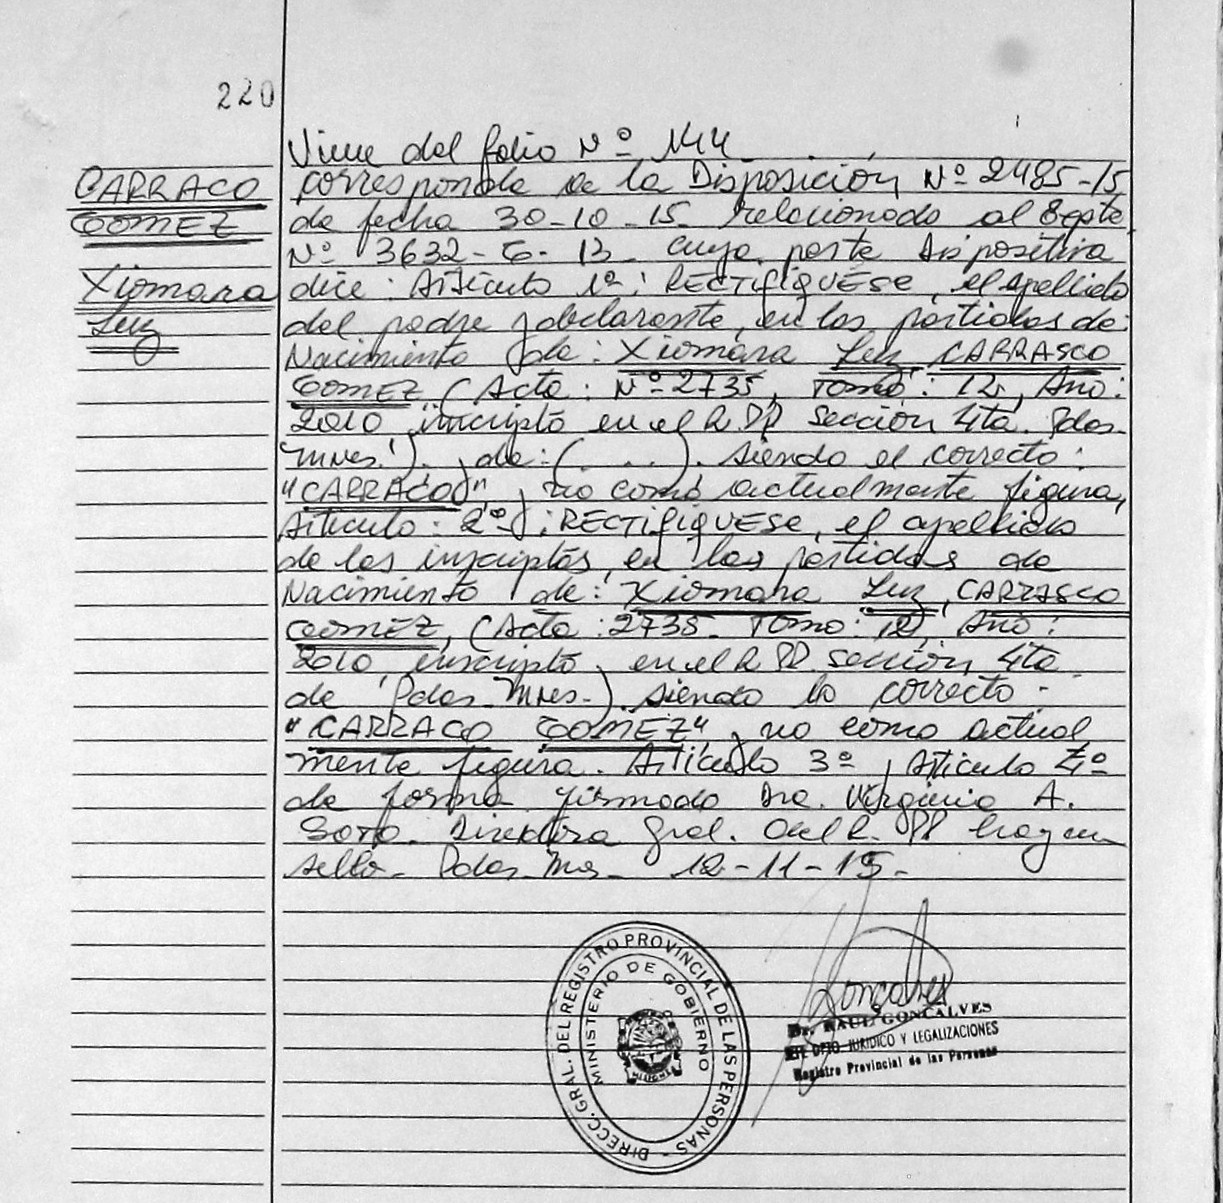 220
Viene del folio Nº 144
CARRACO
GOMEZ
Xiomara
Luz
corresponde a la Disposición Nº 2485-15
de fecha 30-10-15 relacionado al Expte
Nº 3632-G-13 cuya parte dispositiva
dice: Artículo 1º: RECTIFIQUESE, el apellido
del padre y declarante, en las partidas de:
Nacimiento de: Xiomara Luz CARRASCO
GOMEZ (Acta: Nº 2735, Tomo: 12, Año:
2010 inscripto en el R.PP sección 4ta. Pdas.
Mnes.) y de: (....). siendo el correcto:
"CARRACO" y no como actualmente figura,
Artículo: 2º: RECTIFIQUESE, el apellido
de los inscriptos, en las partidas de
Nacimiento de: Xiomara Luz, CARRASCO
GOMEZ, (Acta: 2735 Tomo: 12, Año:
2010, inscripto, en el R PP. sección 4ta
de Pdas Mnes.) siendo lo correcto:
"CARRACO GOMEZ" y no como actual
mente figura. Artículo 3º y Artículo 4º
de forma firmado Dra. Virginia A.
Soto. Directora Gral. del R. PP hay un
sello. Pdas. Mns. 12-11-15.
DIRECC. GRAL. DEL REGISTRO PROVINCIAL DE LAS PERSONAS
MINISTERIO DE GOBIERNO
MISIONES
Goncalves
Dr. RAUL GONCALVES
JEFE DPTO. JURIDICO Y LEGALIZACIONES
Registro Provincial de las Personas